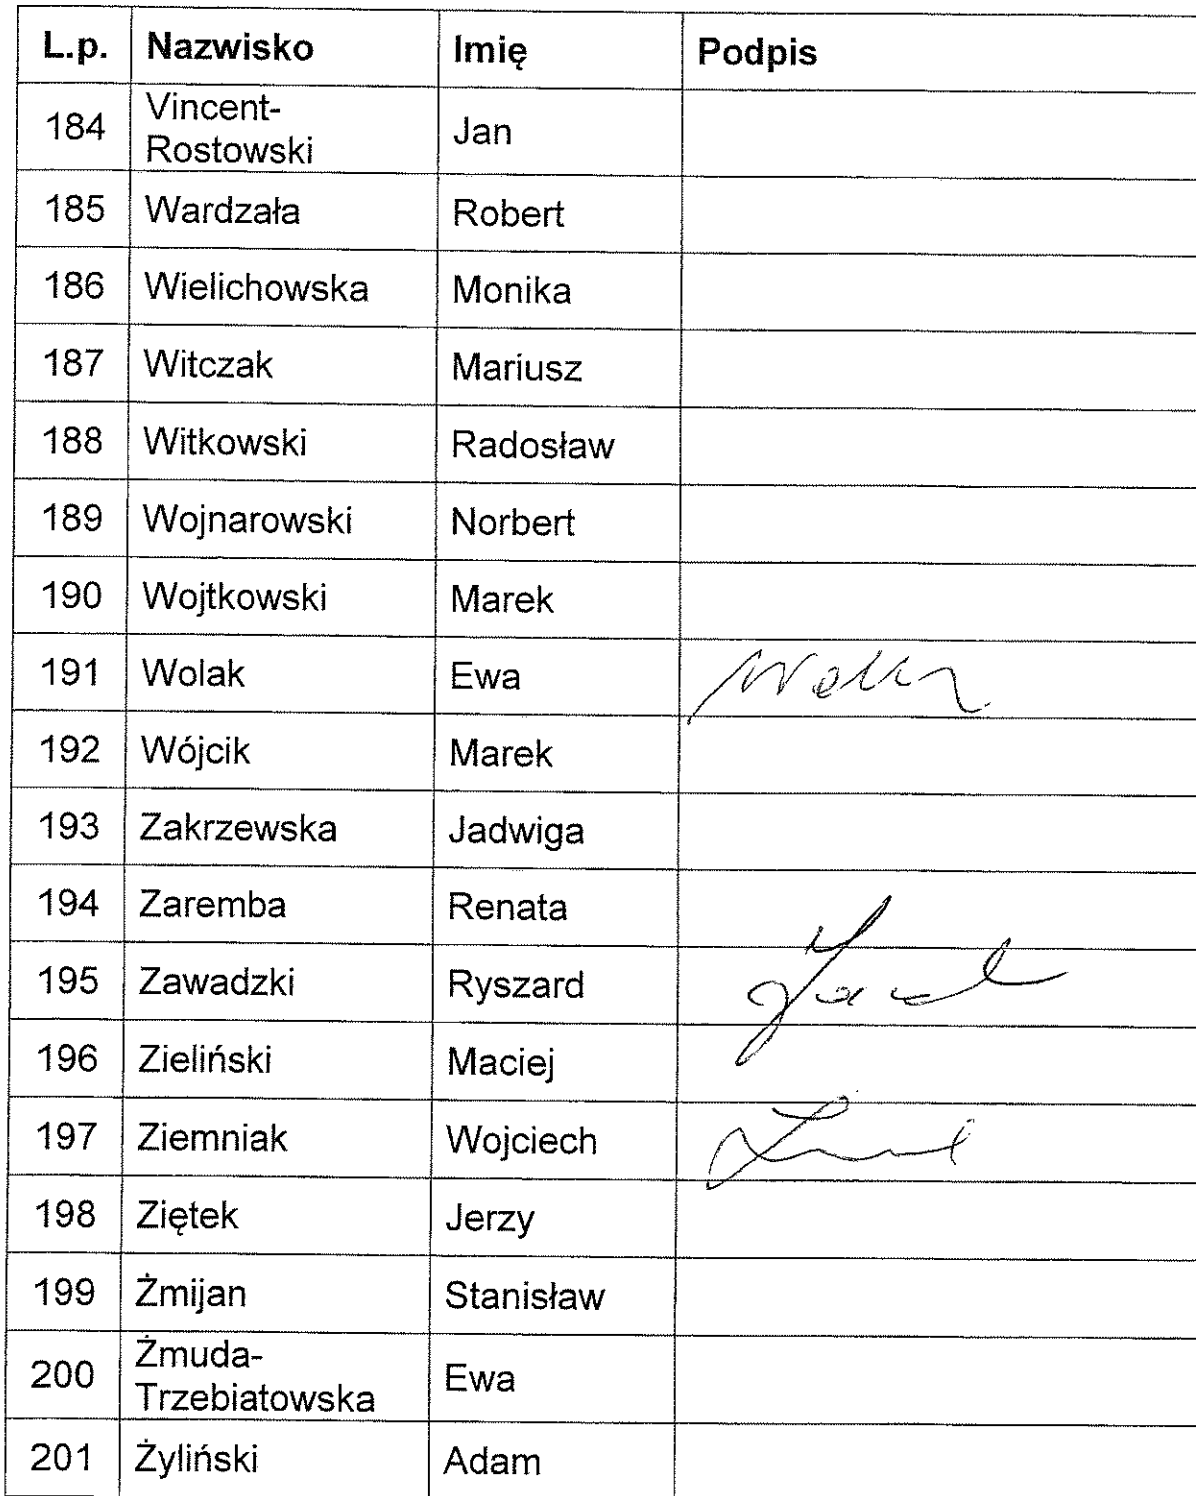 L.p. Nazwisko Imię Podpis
184 Vincent-
Rostowski Jan
185 Wardzała Robert
186 Wielichowska Monika
187 Witczak Mariusz
188 Witkowski Radosław
189 Wojnarowski Norbert
190 Wojtkowski Marek
191 Wolak Ewa
192 Wójcik Marek
193 Zakrzewska Jadwiga
194 Zaremba Renata
195 Zawadzki Ryszard
196 Zieliński Maciej
197 Ziemniak Wojciech
198 Ziętek Jerzy
199 Żmijan Stanisław
200 Żmuda-
Trzebiatowska Ewa
201 Żyliński Adam